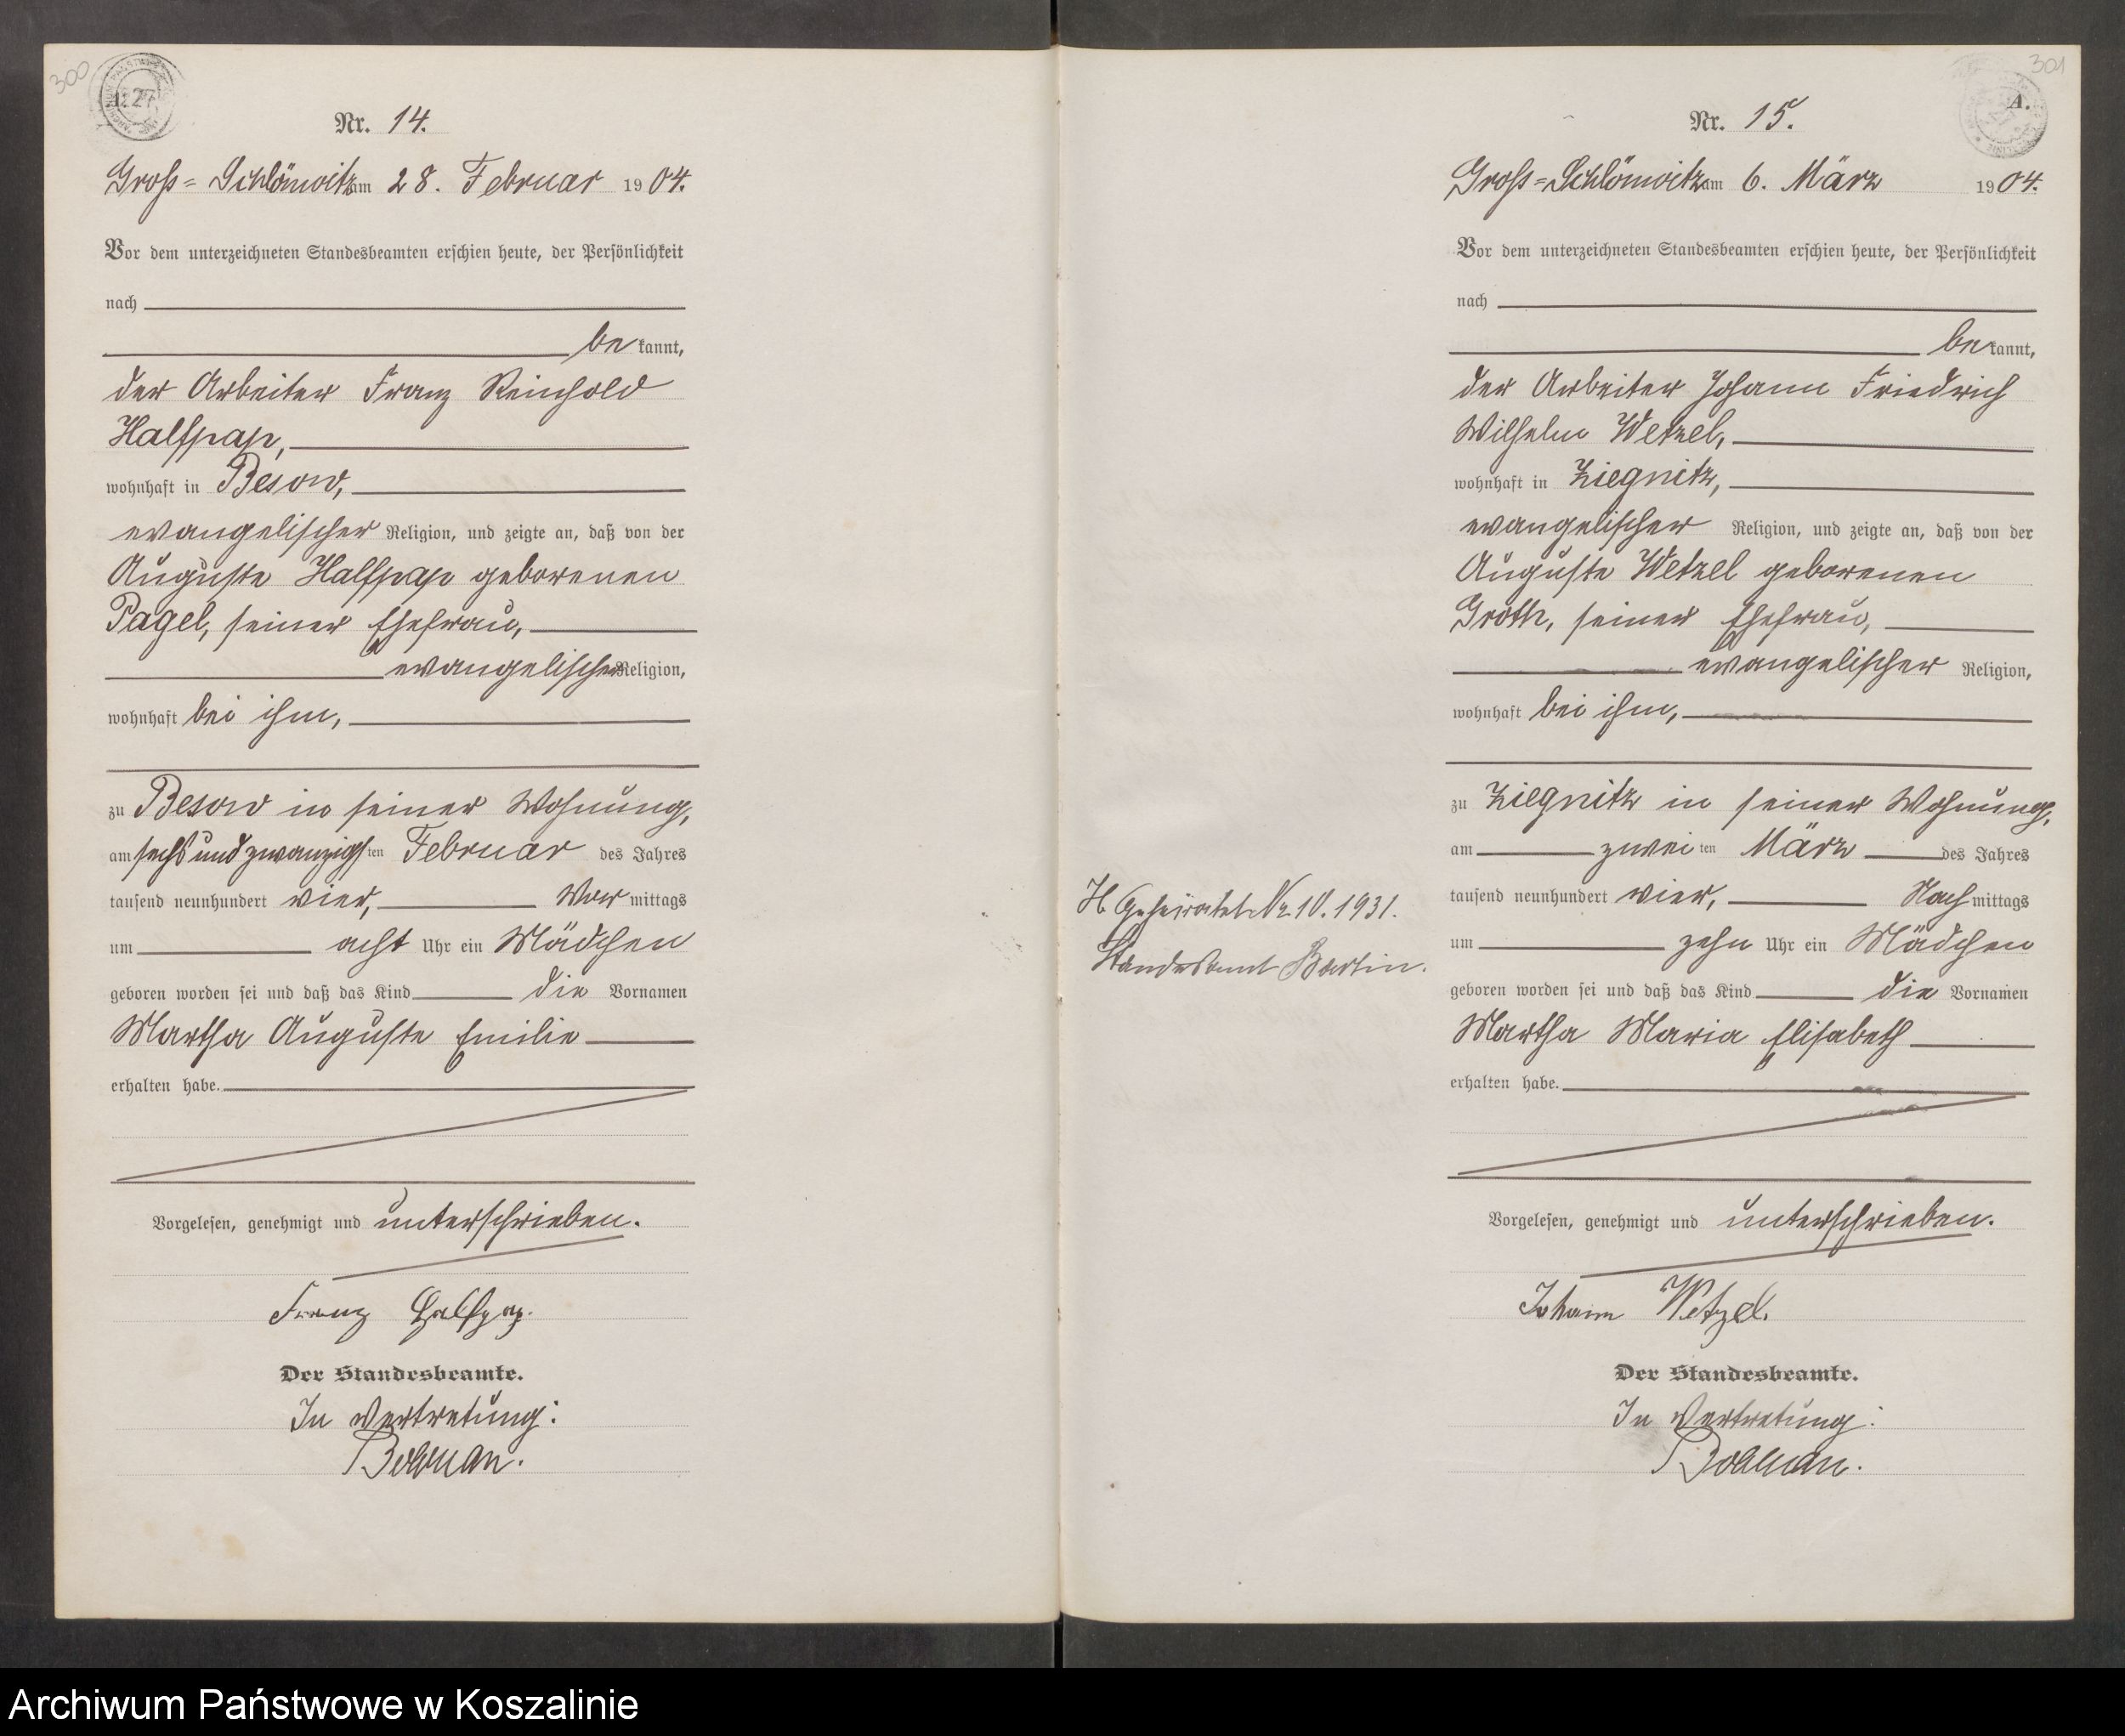 300
Nr. 14.
Gross=Schlönwitz am 28. Februar 1904.
Vor dem unterzeichneten Standesbeamten erschien heute, der Persönlichkeit
nach
bekannt,
der Arbeiter Franz Reinhold
Halfpap,
wohnhaft in Besow,
evangelischer Religion, und zeigte an, daß von der
Auguste Halfpap geborenen
Pagel, seiner Ehefrau,
evangelischer Religion,
wohnhaft bei ihm,
zu Besow in seiner Wohnung,
am sechsundzwanzigsten Februar des Jahres
tausend neunhundert vier, Vormittags
um acht Uhr ein Mädchen
geboren worden sei und daß das Kind die Vornamen
Martha Auguste Emilie
erhalten habe.
Vorgelesen, genehmigt und unterschrieben.
Franz Halfpap.
Der Standesbeamte.
In Vertretung:
301
A.
Nr. 15.
Gross=Schlönwitz am 6. März 1904.
Vor dem unterzeichneten Standesbeamten erschien heute, der Persönlichkeit
nach
bekannt,
der Arbeiter Johann Friedrich
Wilhelm Wetzel,
wohnhaft in Ziegnitz,
evangelischer Religion, und zeigte an, daß von der
Auguste Wetzel geborenen
Groth, seiner Ehefrau,
evangelischer Religion,
wohnhaft bei ihm,
zu Ziegnitz in seiner Wohnung,
am zweiten März des Jahres
tausend neunhundert vier, Nachmittags
um zehn Uhr ein Mädchen
geboren worden sei und daß das Kind die Vornamen
Martha Maria Elisabeth
erhalten habe.
Vorgelesen, genehmigt und unterschrieben.
Johann Wetzel.
Der Standesbeamte.
In Vertretung:
H. Geheiratet Nr 10. 1931.
Standesamt Bartin.
Archiwum Państwowe w Koszalinie